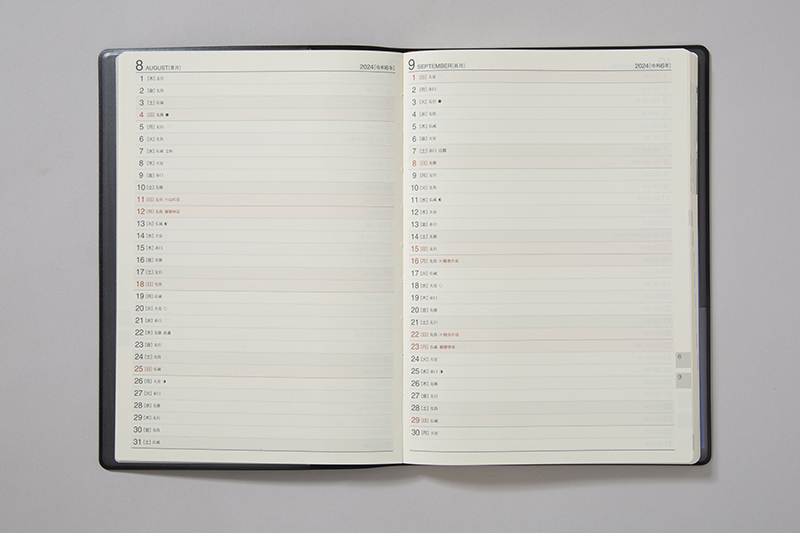 8 AUGUST[葉月] 2024[令和6年]
1 [木] 友引
2 [金] 先負
3 [土] 仏滅
4 [日] 先勝 ●
5 [月] 友引
6 [火] 先負
7 [水] 仏滅 立秋
8 [木] 大安
9 [金] 赤口
10 [土] 先勝
11 [日] 友引 ×山の日
12 [月] 先負 振替休日
13 [火] 仏滅 ◐
14 [水] 大安
15 [木] 赤口
16 [金] 先勝
17 [土] 友引
18 [日] 先負
19 [月] 仏滅
20 [火] 大安 ○
21 [水] 赤口
22 [木] 先勝 処暑
23 [金] 友引
24 [土] 先負
25 [日] 仏滅
26 [月] 大安 ◑
27 [火] 赤口
28 [水] 先勝
29 [木] 友引
30 [金] 先負
31 [土] 仏滅
9 SEPTEMBER[長月] 2024[令和6年]
1 [日] 大安
2 [月] 赤口
3 [火] 友引 ●
4 [水] 先負
5 [木] 仏滅
6 [金] 大安
7 [土] 赤口 白露
8 [日] 先勝
9 [月] 友引
10 [火] 先負
11 [水] 仏滅 ◐
12 [木] 大安
13 [金] 赤口
14 [土] 先勝
15 [日] 友引
16 [月] 先負 ×敬老の日
17 [火] 仏滅
18 [水] 大安 ○
19 [木] 赤口
20 [金] 先勝
21 [土] 友引
22 [日] 先負 ×秋分の日
23 [月] 仏滅 振替休日
24 [火] 大安
25 [水] 赤口 ◑
26 [木] 先勝
27 [金] 友引
28 [土] 先負
29 [日] 仏滅
30 [月] 大安
8
9